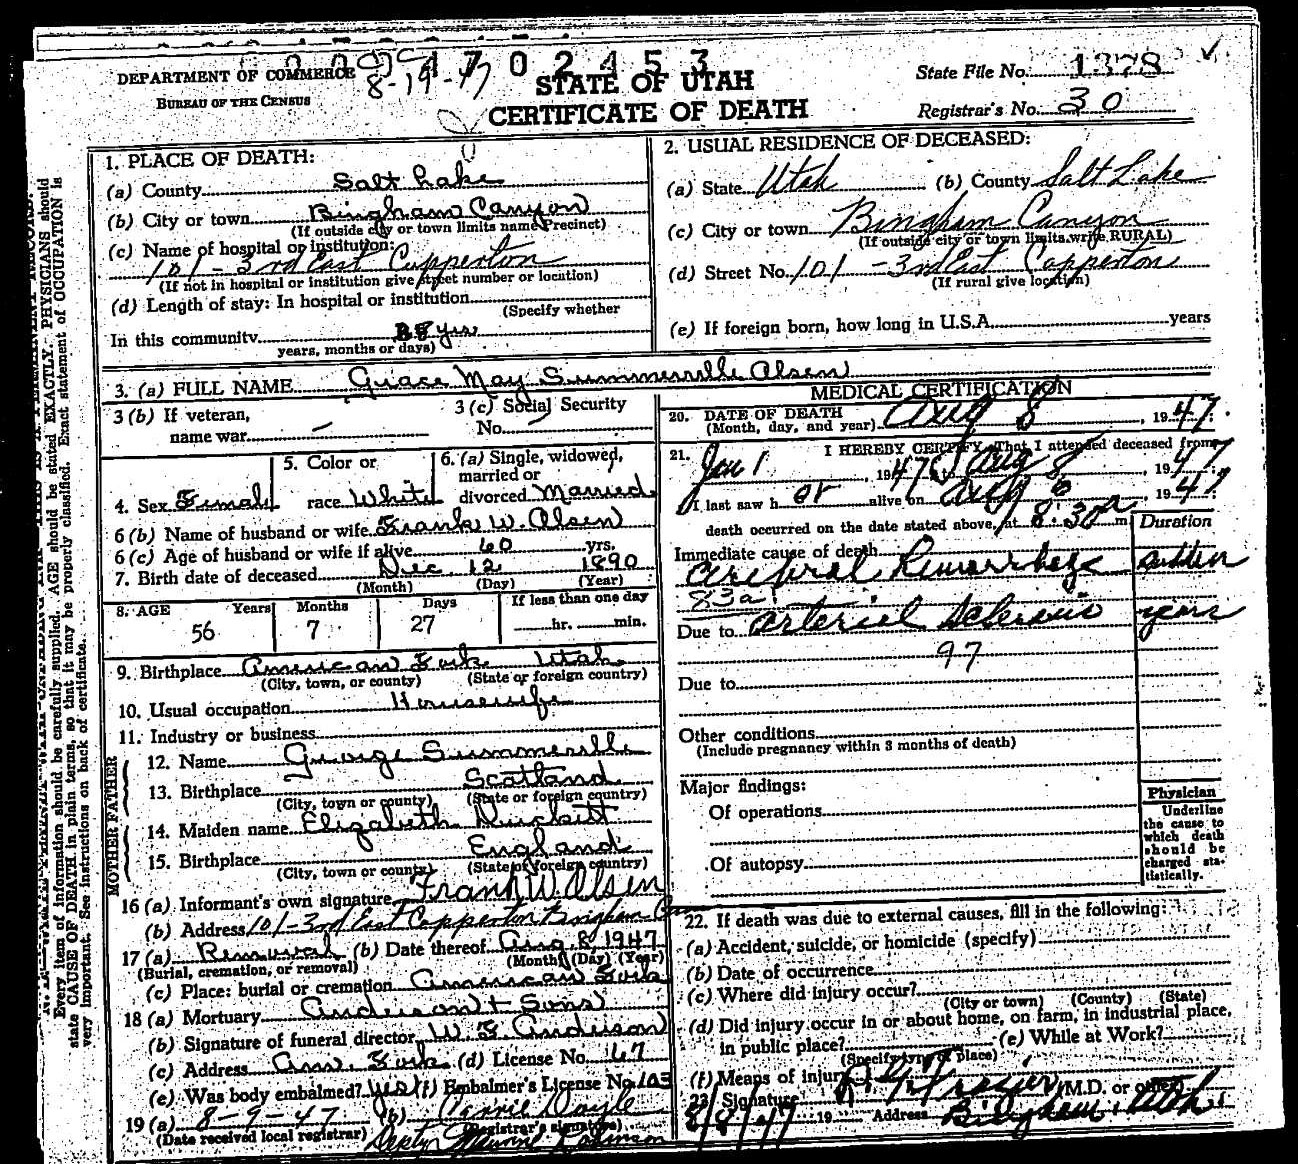 4702453
DEPARTMENT OF COMMERCE
BUREAU OF THE CENSUS
8-19-47
STATE OF UTAH
CERTIFICATE OF DEATH
State File No. 1378
Registrar's No. 30
1. PLACE OF DEATH:
(a) County Salt Lake
(b) City or town Bingham Canyon
(If outside city or town limits name Precinct)
(c) Name of hospital or institution:
101 - 3rd East Copperton
(If not in hospital or institution give street number or location)
(d) Length of stay: In hospital or institution
(Specify whether
In this community yrs
years, months or days)
2. USUAL RESIDENCE OF DECEASED:
(a) State Utah (b) County Salt Lake
(c) City or town Bingham Canyon
(If outside city or town limits write RURAL)
(d) Street No. 101 - 3rd East Copperton
(If rural give location)
(e) If foreign born, how long in U.S.A. years
3. (a) FULL NAME Grace May Summerville Olsen
3 (b) If veteran, name war —
3 (c) Social Security No. —
4. Sex Female
5. Color or race White
6. (a) Single, widowed, married or divorced Married
6 (b) Name of husband or wife Frank W. Olsen
6 (c) Age of husband or wife if alive 60 yrs.
7. Birth date of deceased Dec. 12 1890
(Month) (Day) (Year)
8. AGE Years Months Days If less than one day
56 7 27 hr. min.
9. Birthplace American Fork Utah
(City, town, or county) (State or foreign country)
10. Usual occupation Housewife
11. Industry or business
FATHER
12. Name George Summerville
13. Birthplace Scotland
(City, town or county) (State or foreign country)
MOTHER
14. Maiden name Elizabeth
15. Birthplace England
(City, town or county) (State or foreign country)
16 (a) Informant's own signature Frank W. Olsen
(b) Address 101-3rd East Copperton Bingham Can
17 (a) Removal (b) Date thereof Aug. 8, 1947
(Burial, cremation, or removal) (Month) (Day) (Year)
(c) Place: burial or cremation American Fork
18 (a) Mortuary Anderson + Sons
(b) Signature of funeral director W. F. Anderson
(c) Address Am. Fork (d) License No. 67
(e) Was body embalmed? yes (f) Embalmer's License No. 103
19 (a) 8-9-47 (b) Carrie Doyle
(Date received local registrar) (Registrar's signature)
MEDICAL CERTIFICATION
20. DATE OF DEATH
(Month, day, and year) Aug 8, 1947.
21. I HEREBY CERTIFY, That I attended deceased from
Jan 1, 1947 to Aug 8, 1947
I last saw her alive on Aug 1947
death occurred on the date stated above, at 8:30 a m
Duration
Immediate cause of death
Cerebral Hemorrhage sudden
83a
Due to arterial sclerosis years
97
Due to
Other conditions
(Include pregnancy within 3 months of death)
Major findings:
Of operations
Of autopsy
Physician
Underline the cause to which death should be charged statistically.
22. If death was due to external causes, fill in the following:
(a) Accident, suicide, or homicide (specify)
(b) Date of occurrence
(c) Where did injury occur?
(City or town) (County) (State)
(d) Did injury occur in or about home, on farm, in industrial place,
in public place? (e) While at Work?
(Specify type of place)
(f) Means of injury
23. Signature Frazier (M.D. or other)
8/8/47 19 Address Bingham, Utah.
Every item of information should be carefully supplied. AGE should be stated EXACTLY. PHYSICIANS should
state CAUSE OF DEATH in plain terms, so that it may be properly classified. Exact statement of OCCUPATION is
very important. See instructions on back of certificate.